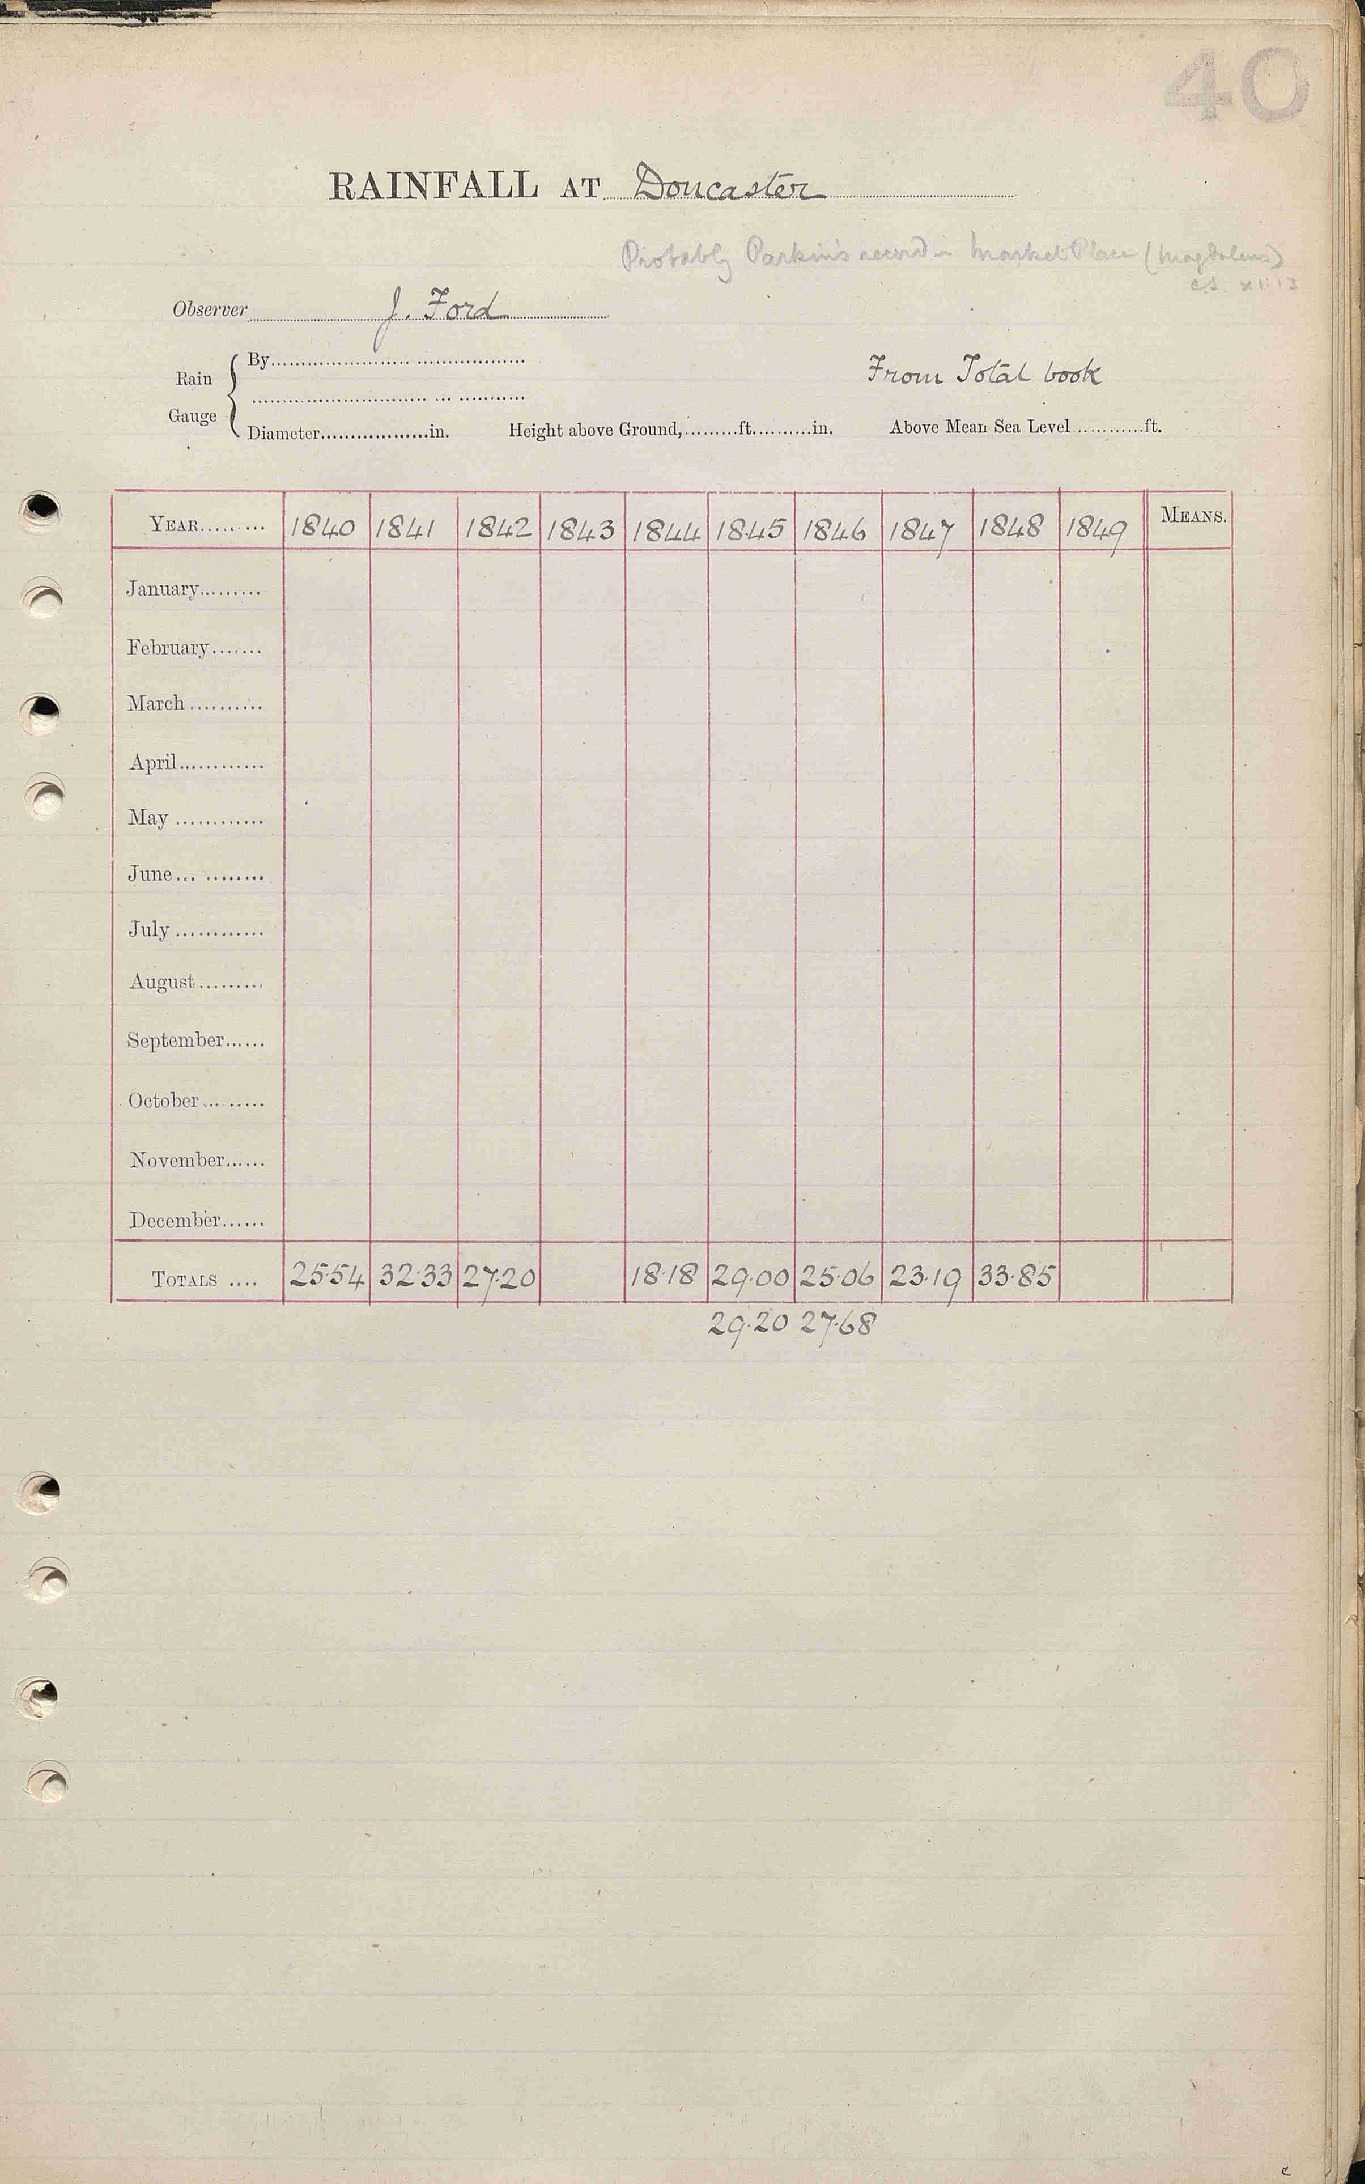 40
RAINFALL AT Doncaster
Probably Parkin's record in Market Place (Magdalens)
C.S. XI.13
Observer J. Ford
Rain Gauge
By
From Total book
Diameter in. Height above Ground, ft. in. Above Mean Sea Level ft.
YEAR 1840 1841 1842 1843 1844 1845 1846 1847 1848 1849 MEANS.
January
February
March
April
May
June
July
August
September
October
November
December
TOTALS 25.54 32.33 27.20 18.18 29.00 25.06 23.19 33.85
29.20 27.68